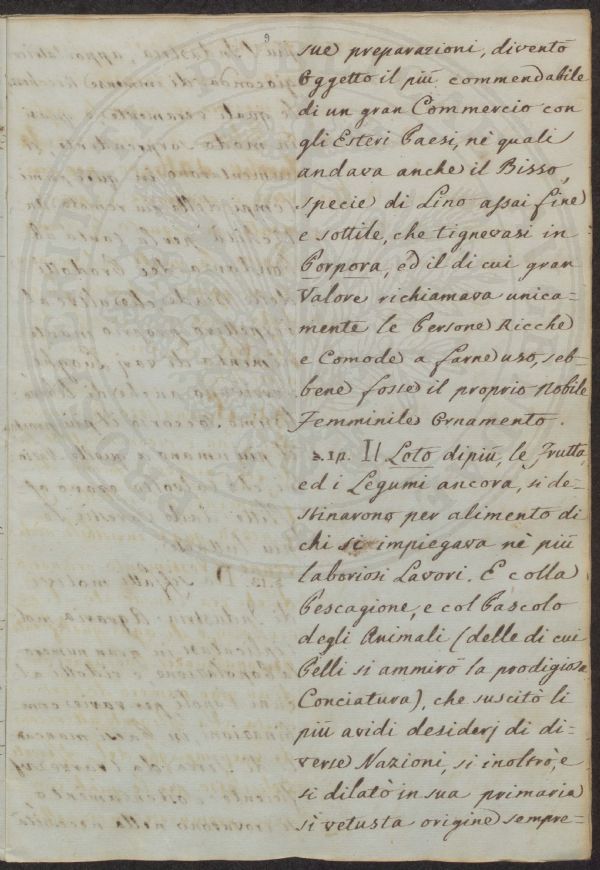 9
sue preparazioni, diventò
Oggetto il più commendabile
di un gran Commercio con
gli Esteri Paesi, nè quali
andava anche il Bisso,
specie di Lino assai fine
e sottile, che tignevasi in
Porpora, ed il di cui gran
Valore richiamava unica=
mente le Persone Ricche
e Comode a farne uso, seb=
bene fosse il proprio Nobile
Femminile Ornamento.
Il Loto dipiù, le Frutta,
ed i Legumi ancora, si de=
stinarono per alimento di
chi si impiegava nè più
laboriosi Lavori. E colla
Pescagione, e col Pascolo
degli Animali (delle di cui
Pelli si ammirò la prodigiosa
Conciatura), che suscitò li
più avidi desiderj di di=
verse Nazioni, si inoltrò, e
si dilatò in sua primaria
sì vetusta origine sempre=